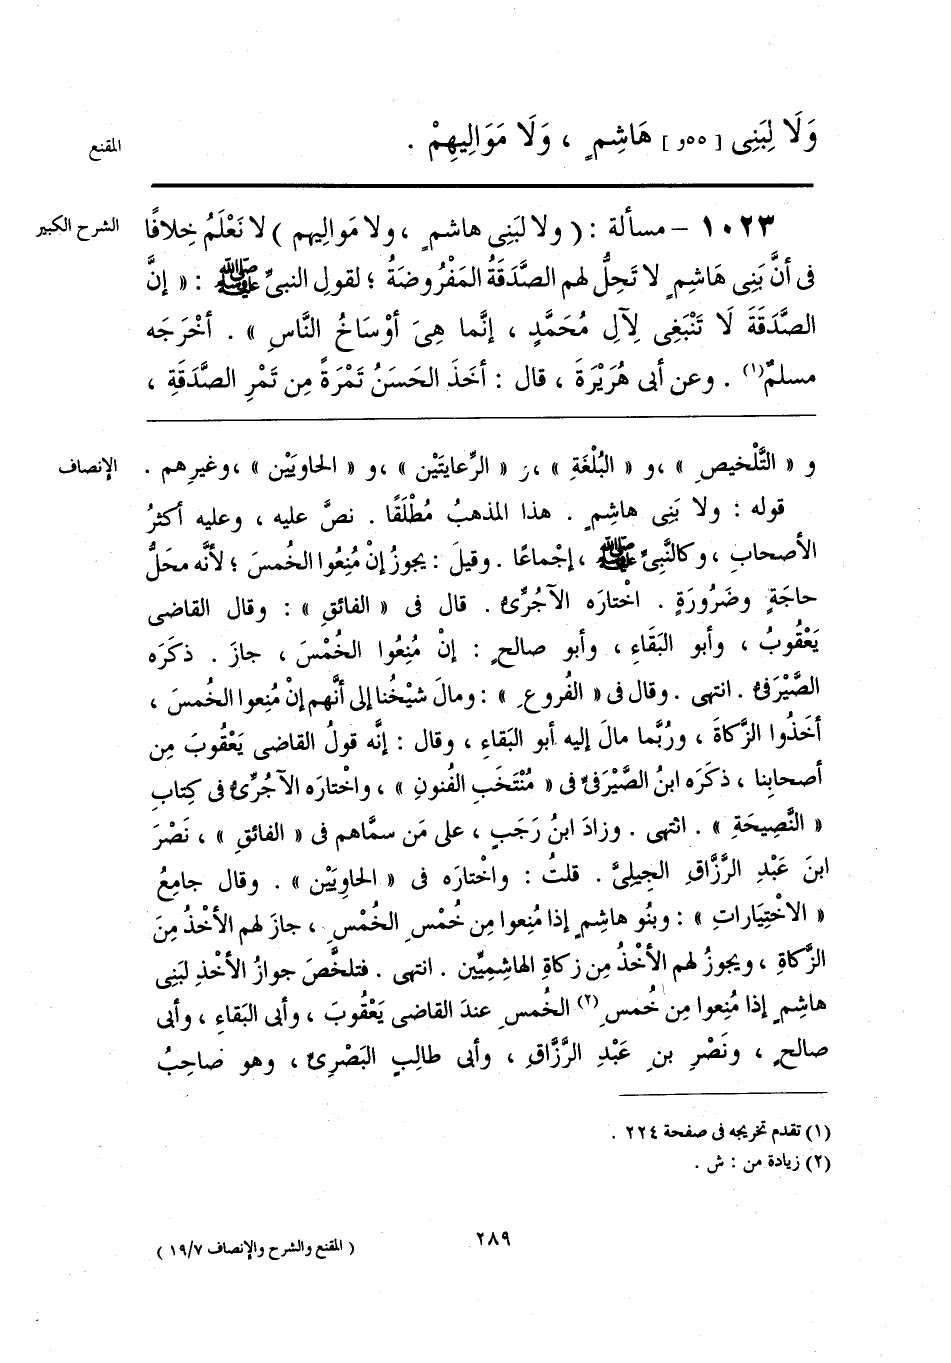 المقنع
وَلَا لِبَنِى [ ٥٥و ] هَاشِمٍ ، وَلَا مَوَالِيهِمْ .
الشرح الكبير
١٠٢٣ – مسألة : ( ولا لبَنِى هاشمٍ ، ولا مَوالِيهم ) لا نَعْلَمُ خِلافًا
فى أنَّ بَنِى هَاشِمٍ لا تَحِلُّ لهم الصَّدَقَةُ المَفْرُوضَةُ ؛ لقولِ النبىِّ ﷺ : « إنَّ
الصَّدَقَةَ لَا تَنْبَغِى لِآلِ مُحَمَّدٍ ، إنَّما هِىَ أوْسَاخُ النَّاسِ » . أخْرَجَه
مسلمٌ(١) . وعن أبى هُرَيْرَةَ ، قال : أخَذَ الحَسَنُ تَمْرَةً مِن تَمْرِ الصَّدَقَةِ ،
الإنصاف
و « التَّلْخيصِ » ،و « البُلْغَةِ » ،و « الرِّعايتَيْن » ،و « الحاوِيَيْن » ،وغيرِهم .
قوله : ولا بَنِى هاشِمٍ . هذا المذهبُ مُطْلَقًا . نصَّ عليه ، وعليه أكثرُ
الأصحابِ ، وكالنَّبِىِّ ﷺ ، إجْماعًا . وقيلَ : يجوزُ إنْ مُنِعُوا الخُمسَ ؛ لأنَّه محَلُّ
حاجَةٍ وضَرُورَةٍ . اخْتارَه الآجُرِّىُّ . قال فى « الفائقِ » : وقال القاضى
يَعْقُوبُ ، وأبو البَقَاءِ ، وأبو صالحٍ : إنْ مُنِعُوا الخُمْسَ ، جازَ . ذكَرَه
الصَّيْرَفىُّ . انتهى . وقال فى « الفُروعِ » : ومالَ شيْخُنا إلى أنَّهم إنْ مُنِعوا الخُمسَ ،
أخَذُوا الزَّكاةَ ، ورُبَّما مالَ إليه أبو البَقاءِ ، وقال : إنَّه قولُ القاضى يَعْقُوبَ مِن
أصحابِنا ، ذكَرَه ابنُ الصَّيْرَفىِّ فى « مُنْتَخَبِ الفُنونِ » ، واخْتارَه الآجُرِّىُّ فى كِتابِ
« النَّصِيحَةِ » . انْتهى . وزادَ ابنُ رَجَبٍ ، على مَن سمَّاهم فى « الفائقِ » ، نَصْرَ
ابنَ عَبْدِ الرَّزَّاقِ الجِيلِىَّ . قلتُ : واخْتارَه فى « الحاوِيَيْن » . وقال جامِعُ
« الاخْتِيَاراتِ » : وبنُو هاشِمٍ إذا مُنِعوا مِن خُمْسِ الخُمْسِ ، جازَ لهم الأخْذُ مِنَ
الزَّكاةِ ، ويجوزُ لهم الأخْذُ مِن زكاةِ الهاشِمِيِّين . انتهى . فتلخَّصَ جوازُ الأخْذِ لبَنِى
هاشِمٍ إذا مُنِعوا مِن خُمسِ(٢) الخُمسِ عندَ القاضى يَعْقُوبَ ، وأبى البَقاءِ ، وأبى
صالحٍ ، ونَصْرِ بنِ عَبْدِ الرَّزَّاقِ ، وأبى طالِبٍ البَصْرِىِّ ، وهو صاحِبُ
(١) تقدم تخريجه فى صفحة ٢٢٤ .
(٢) زيادة من : ش .
٢٨٩
( المقنع والشرح والإنصاف ١٩/٧ )